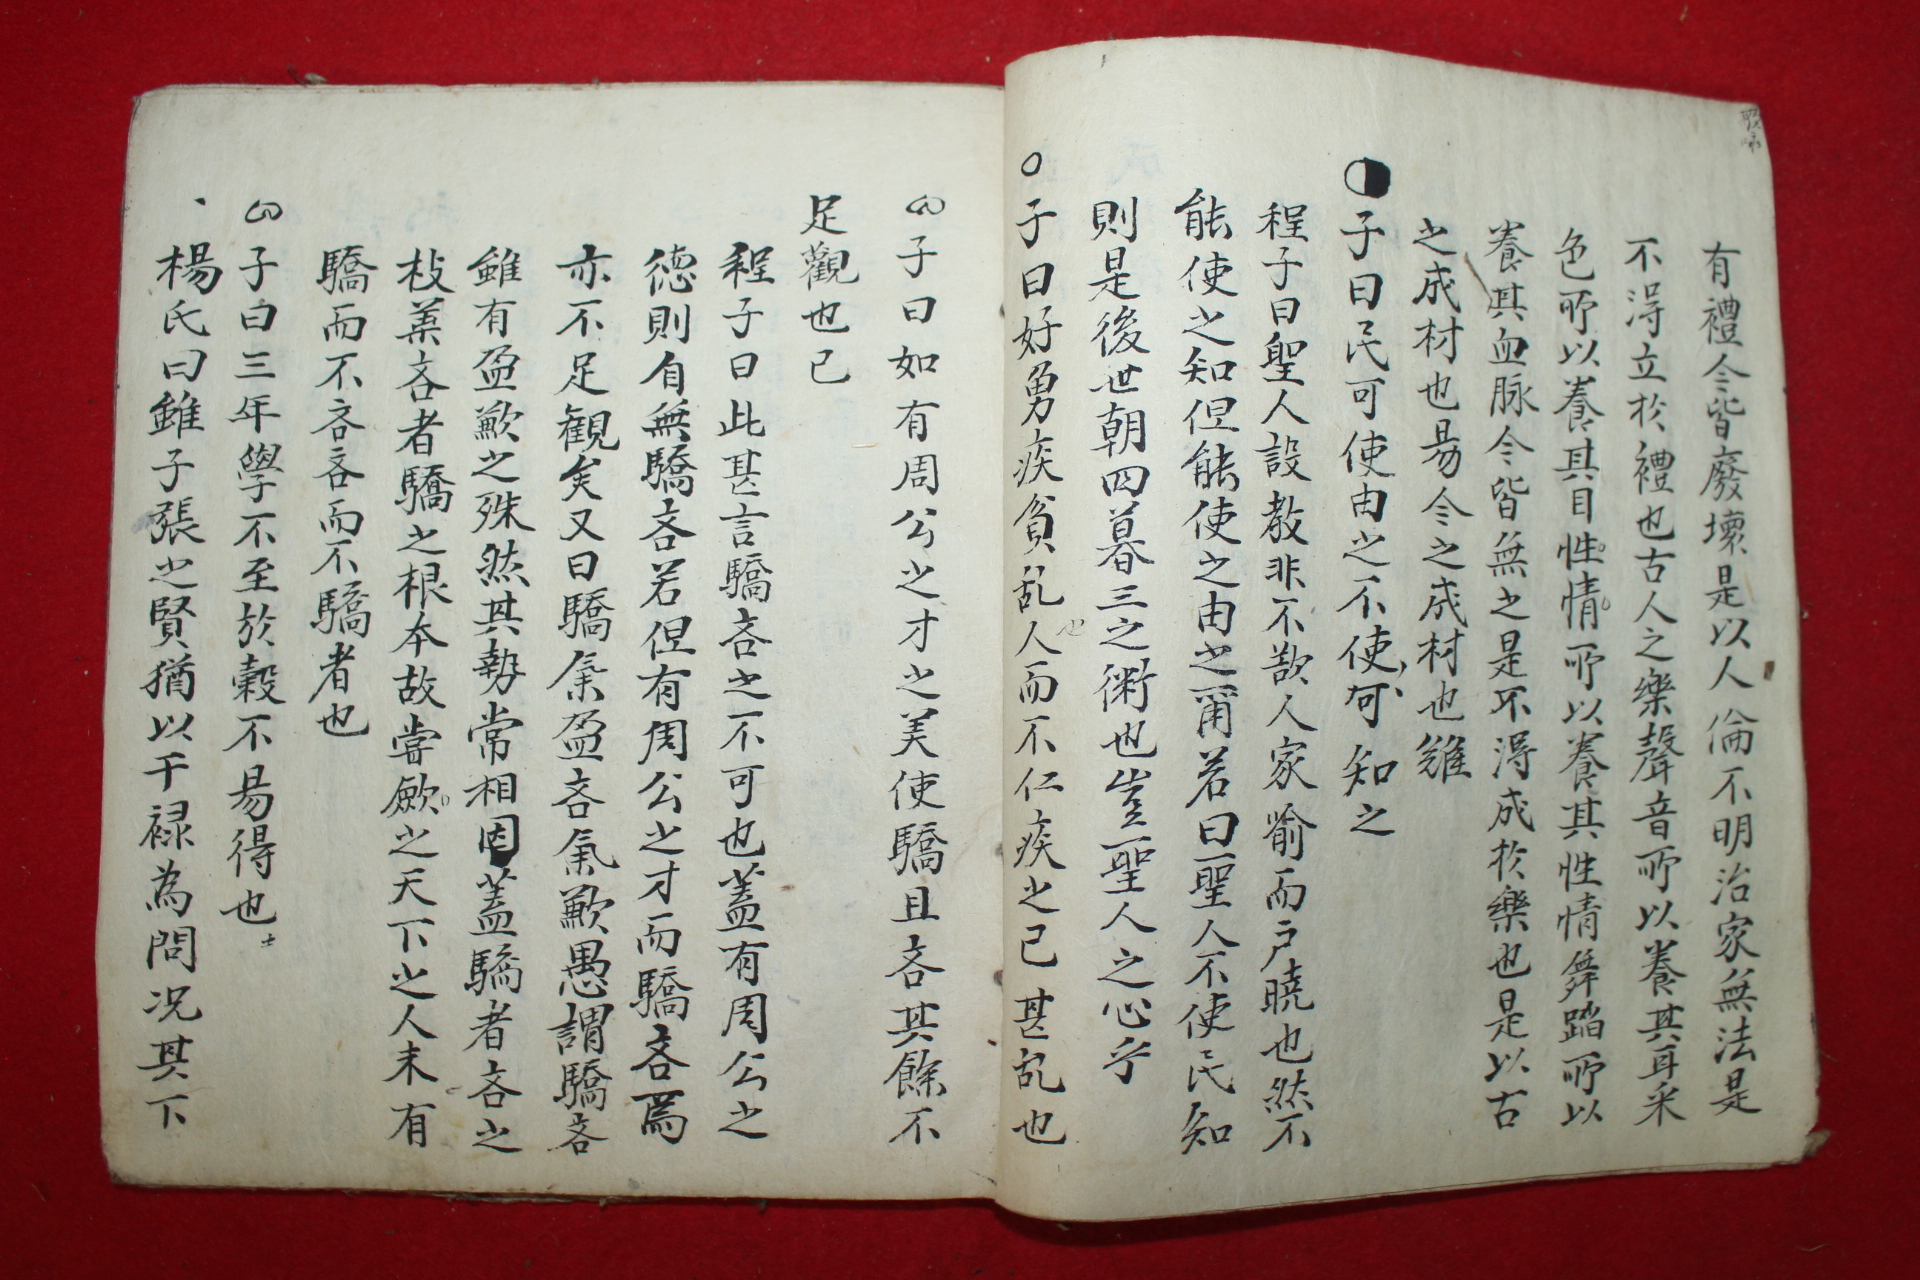 有禮今皆廢壞是以人倫不明治家無法是
不得立於禮也古人之樂聲音所以養其耳采
色所以養其目性情所以養其性情舞蹈所以
養其血脉今皆無之是不得成於樂也是以古
之成材也易今之成材也難
子曰民可使由之不使可知之
程子曰聖人設教非不欲人家喻而戶曉也然不
能使之知但能使之由之甫若曰聖人不使民知
則是後世朝四暮三之術也豈聖人之心乎
子曰好勇疾貧乱人而不仁疾之已甚乱也
子曰如有周公之才之美使驕且吝其餘不
足觀也已
程子曰此甚言驕吝之不可也蓋有周公之
德則自無驕吝若但有周公之才而驕吝焉
亦不足観矣又曰驕氣盈吝氣歉愚謂驕吝
雖有盈歉之殊然其勢常相因蓋驕者吝之
枝葉吝者驕之根本故嘗歛之天下之人未有
驕而不吝吝而不驕者也
子曰三年學不至於穀不易得也
楊氏曰雖子張之賢猶以干祿為問况其下